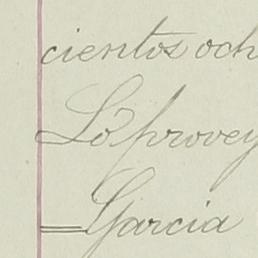 cientos och
Lo provey
=Garcia